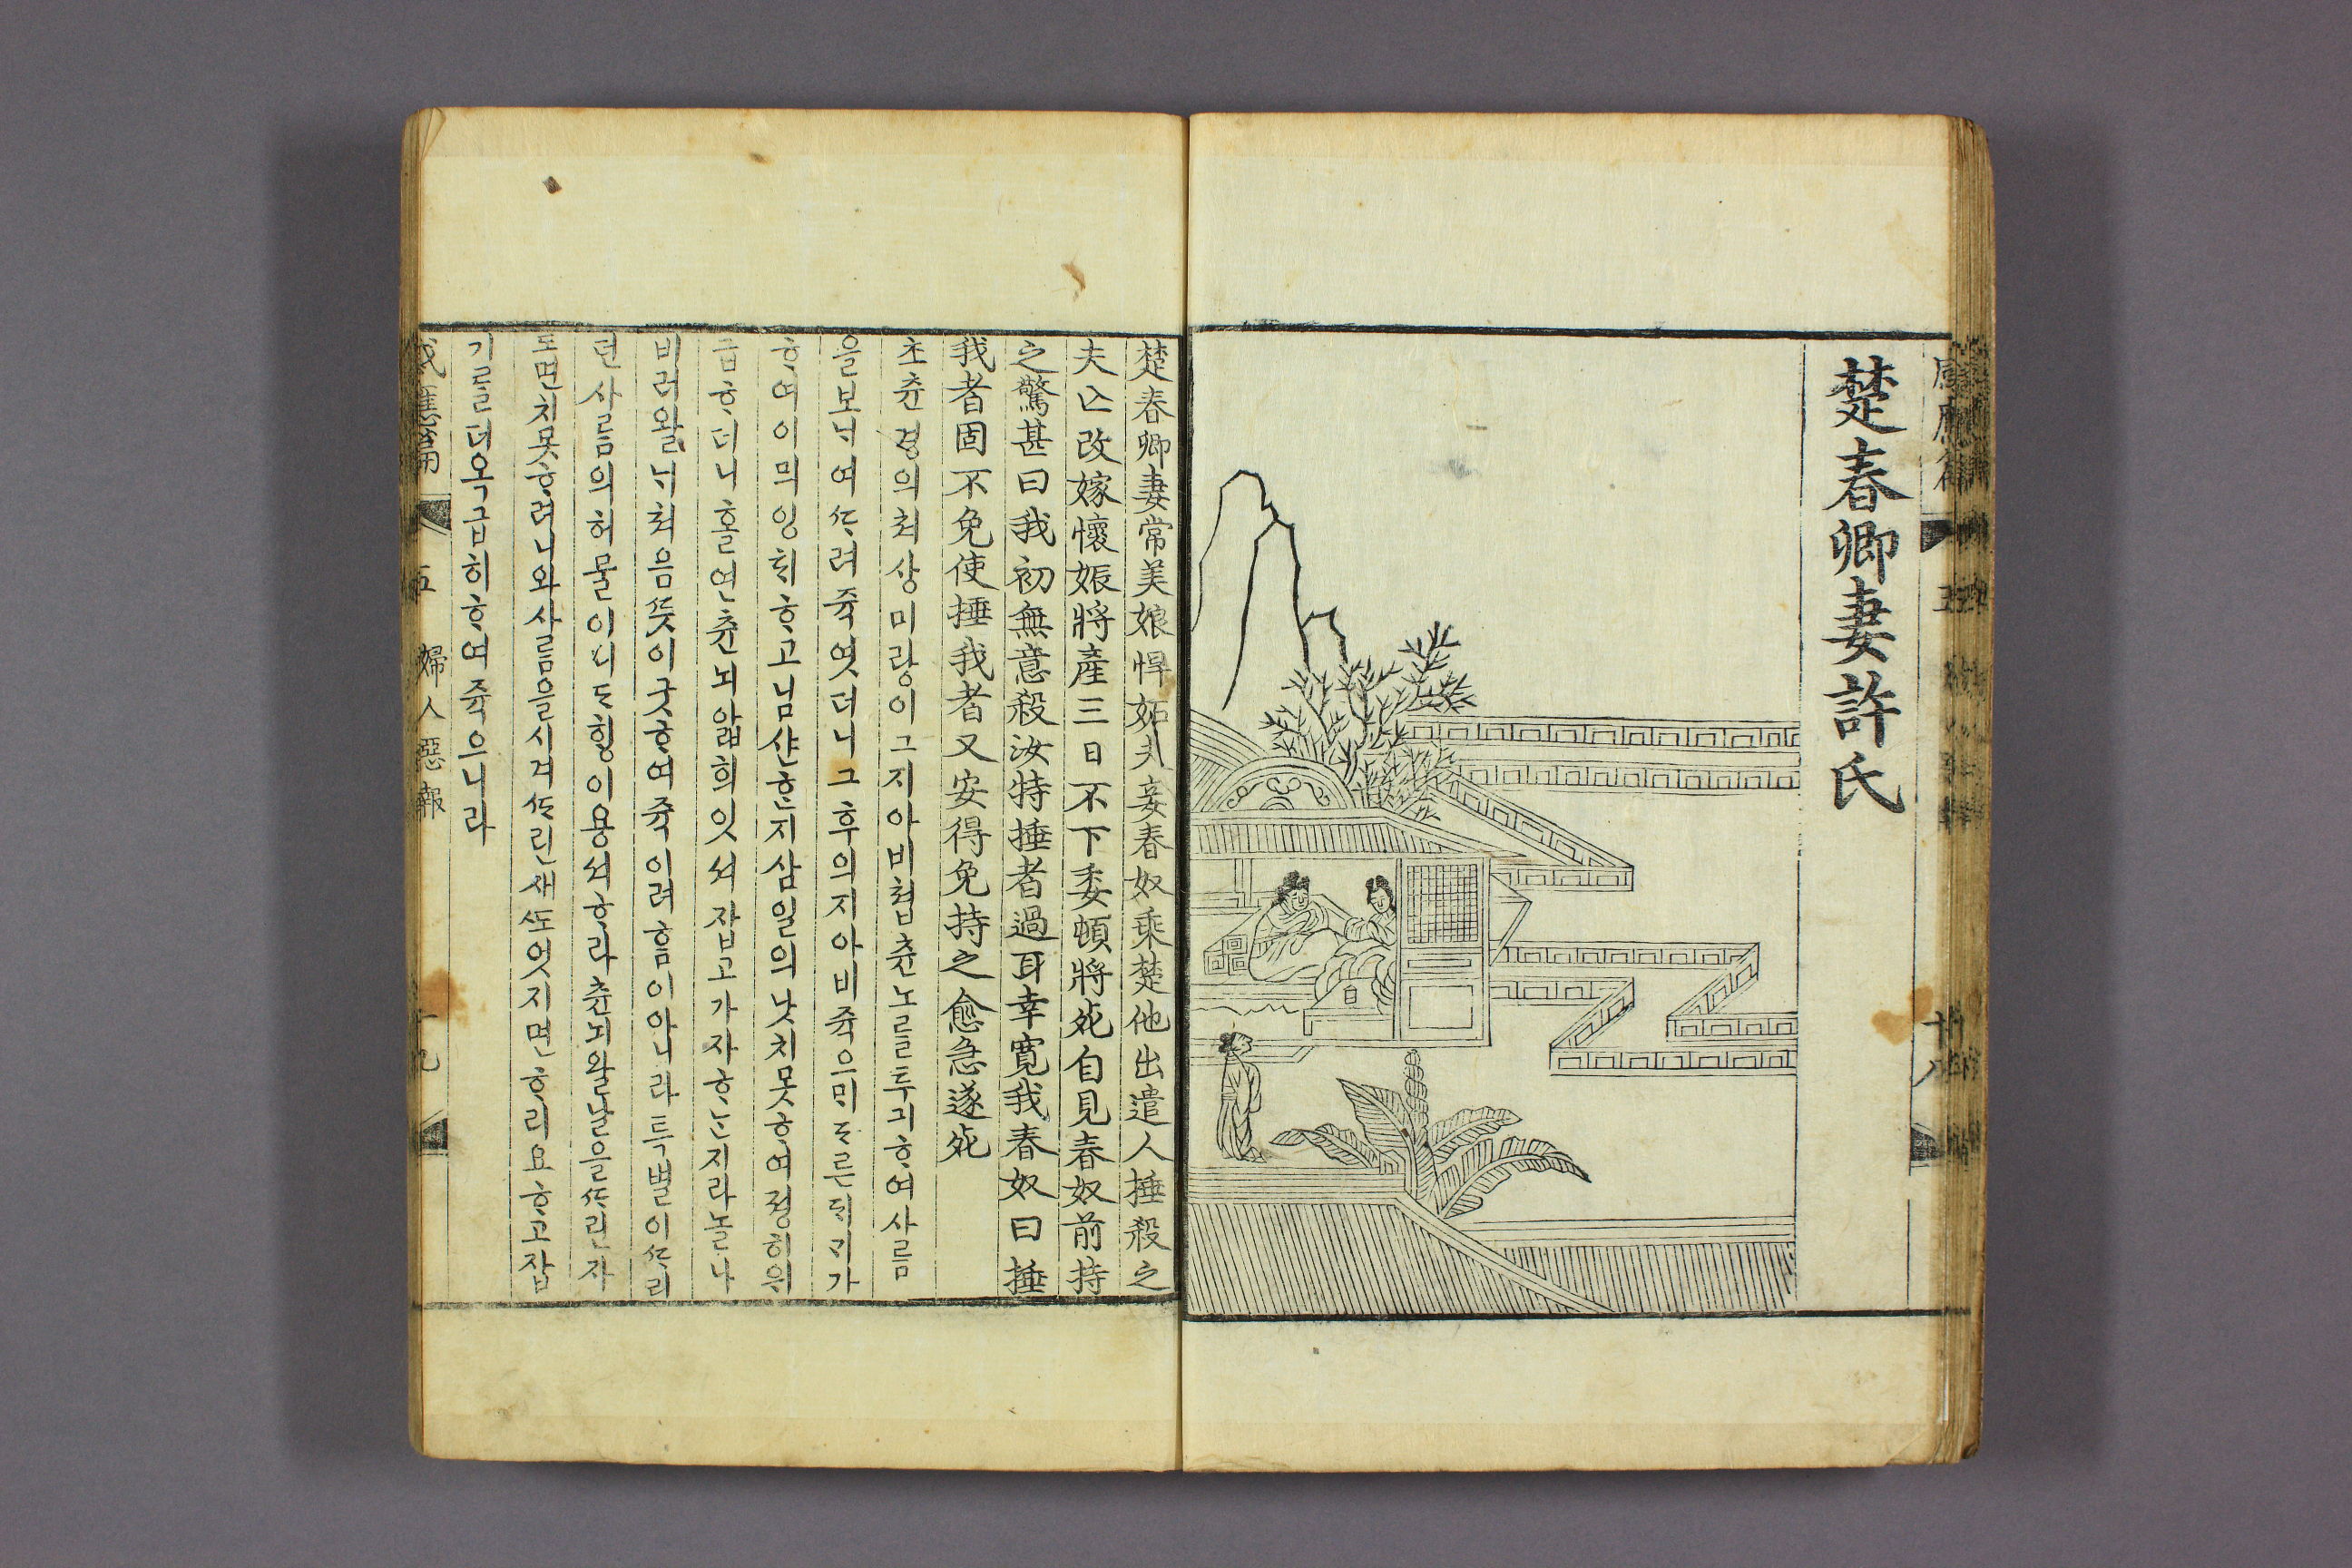 楚春卿妻許氏
感應篇 五 十八
楚春卿妻常美娘悍妬夫妾春奴乘楚他出遣人捶殺之
夫亡改嫁懷娠將產三日不下委頓將死自見春奴前持
之驚甚曰我初無意殺汝特捶者過耳幸寛我春奴曰捶
我者固不免使捶我者又安得免持之愈急遂死
초츈경의쳐상미랑이그지아비쳡츈노를투긔ᄒᆞ여사ᄅᆞᆷ
을보ᄂᆡ여ᄯᆞ려쥭엿더니그후의지아비쥭으ᄆᆡ
ᄒᆞ여이믜잉ᄐᆡᄒᆞ고님샨ᄒᆞᆫ지삼일의낫치못ᄒᆞ여졍히위
급ᄒᆞ더니홀연츈뇌알ᄑᆡ잇셔잡고가자ᄒᆞᄂᆞᆫ지라놀나
비러왈ᄂᆡ쳐음ᄯᅳᆺ이굿ᄒᆞ여쥭이려ᄒᆞᆷ이아니라특별이ᄯᆞ리
던사ᄅᆞᆷ의허물이니ᄃᆞᄒᆡᆼ이용셔ᄒᆞ라츈뇌왈날을ᄯᆞ린자
도면치못ᄒᆞ려니와사ᄅᆞᆷ을시겨ᄯᆞ린재ᄯᅩ엇지면ᄒᆞ리요ᄒᆞ고잡
기를더옥급히ᄒᆞ여쥭으니라
感應篇 五 婦人惡報 十九